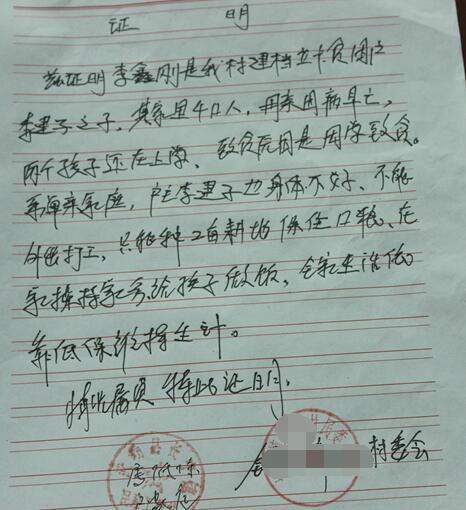 证 明
兹证明李鑫刚是我村建档立卡贫困户
李建子之子,其家里4口人,母亲因病早亡,
两个孩子还在上学、致贫原因是因学致贫。
系单亲家庭,户主李建子也身体不好、不能
外出打工,只能种二亩耕地保住口粮、在
家操持家务给孩子做饭,全家生活低
靠低保维持生计。
情况属实 特此证明。
属低保 村委会